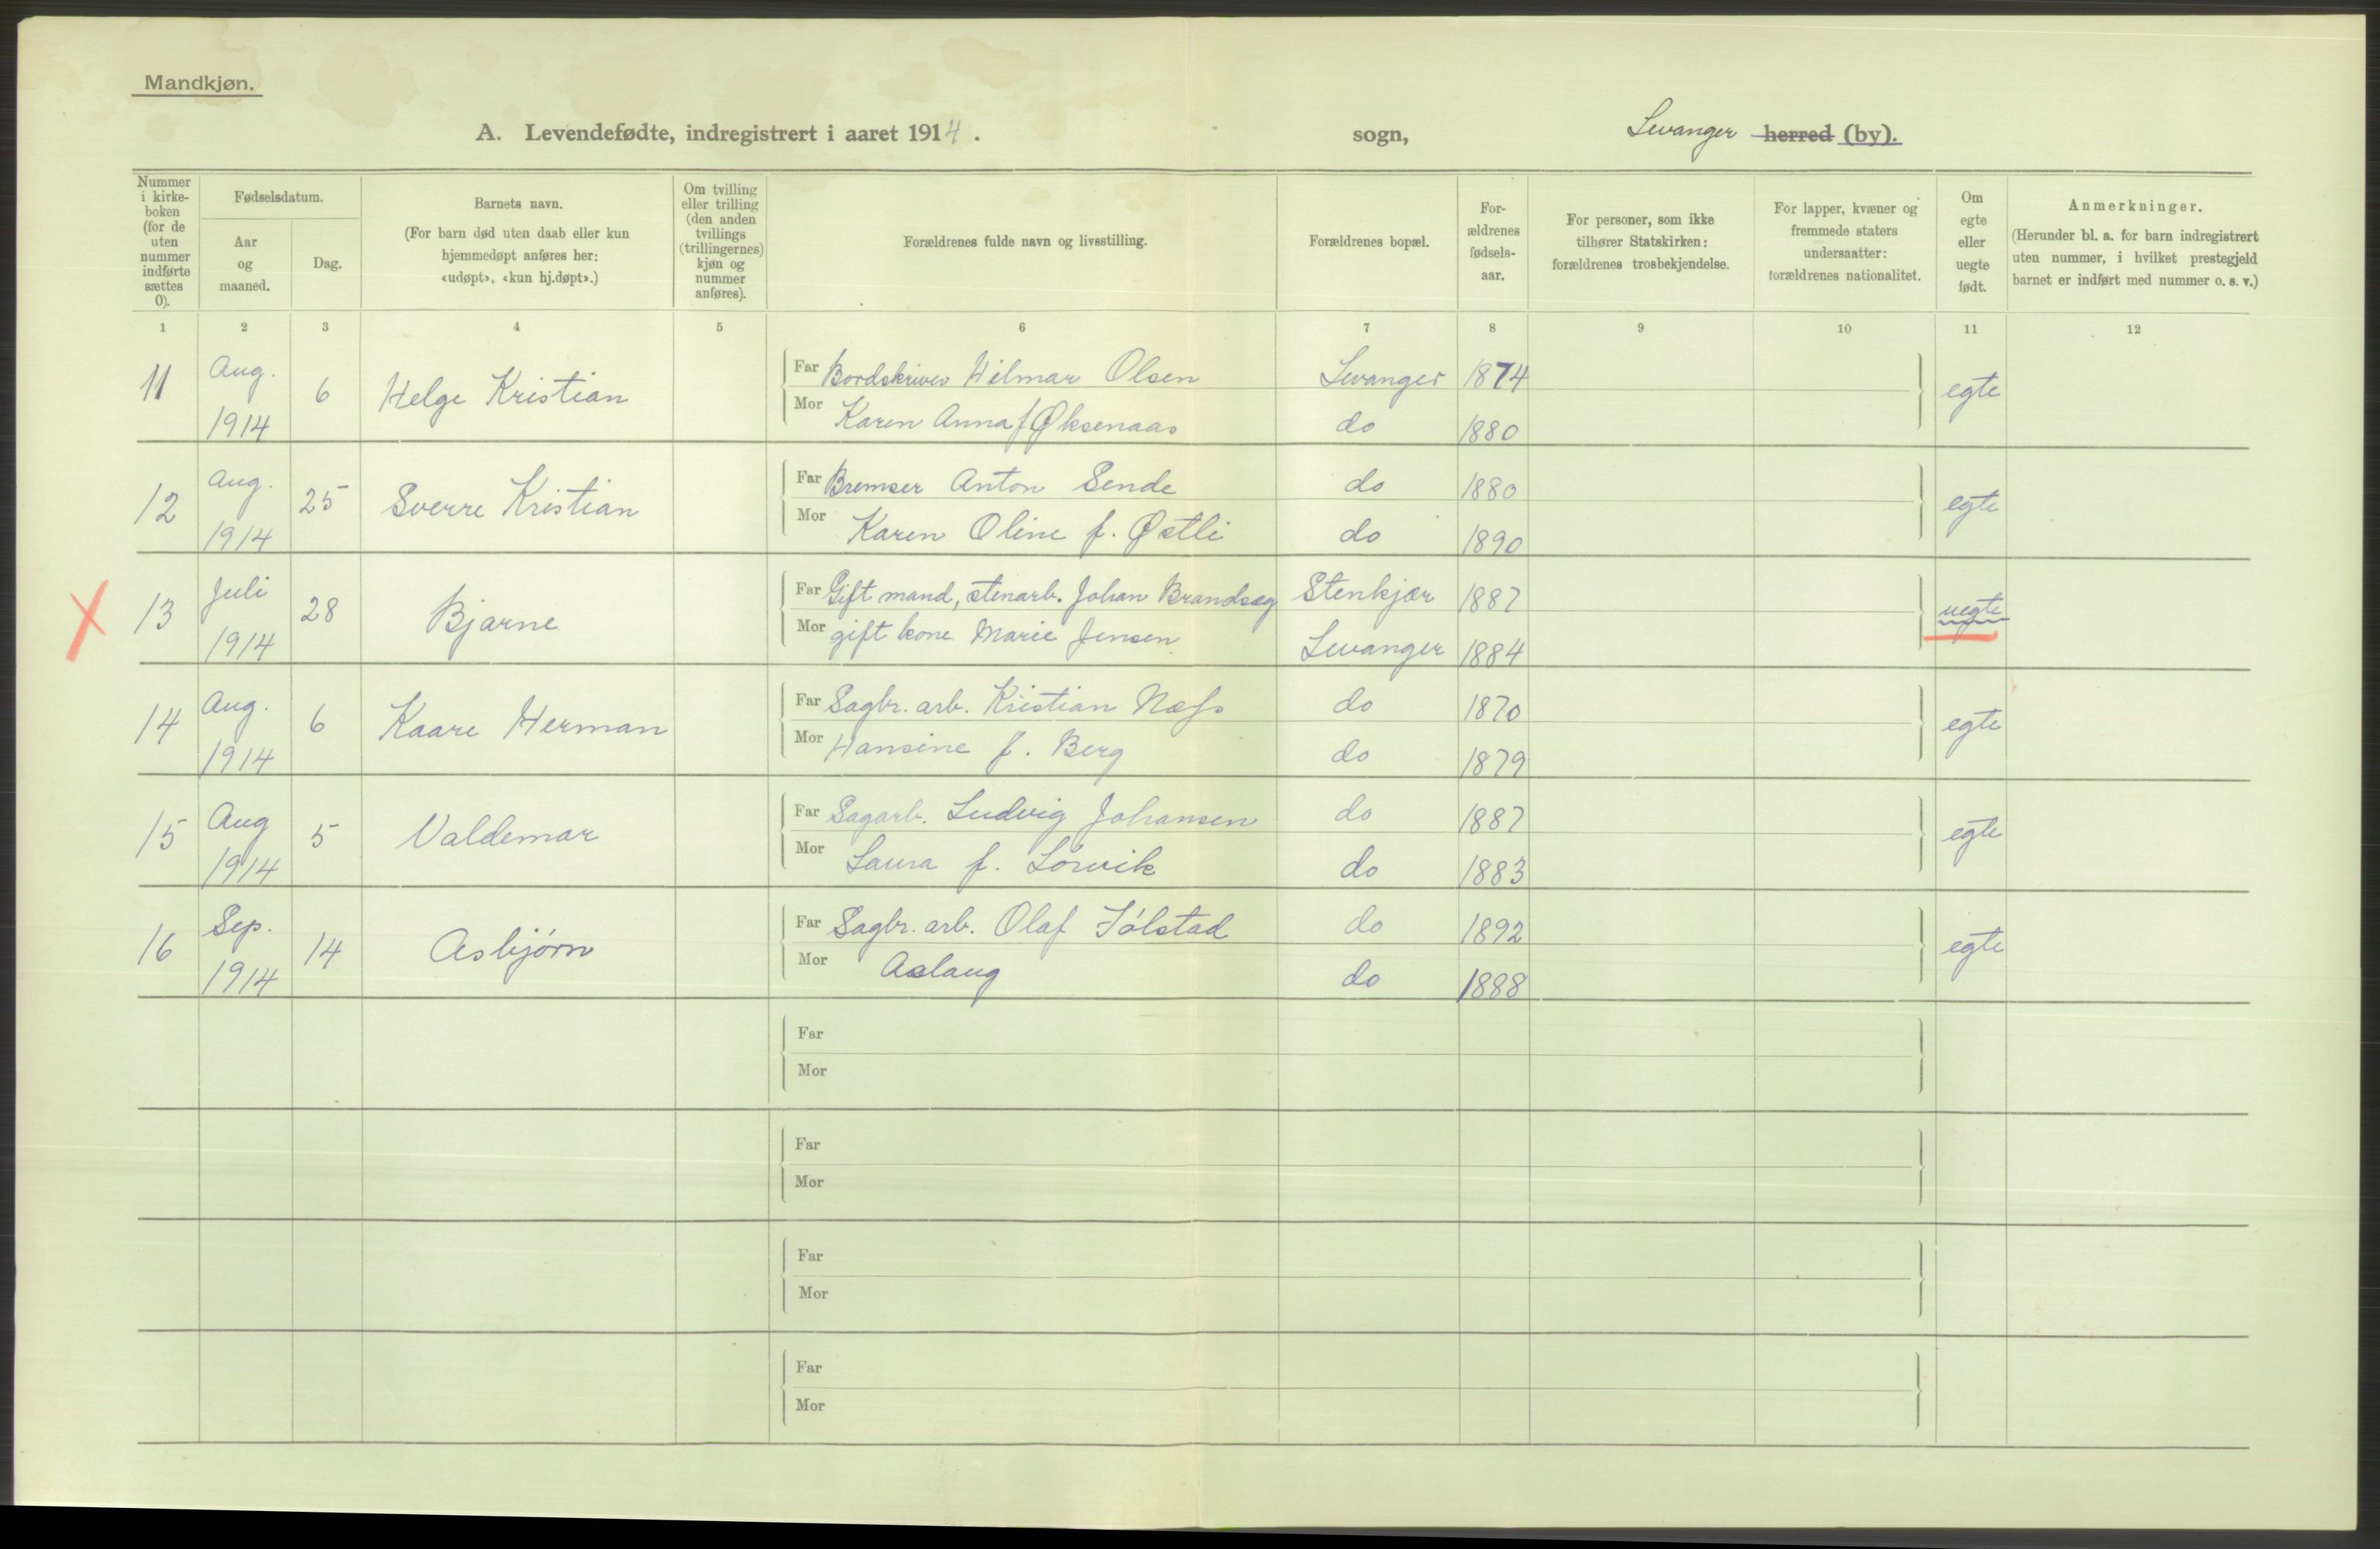 Mandkjøn.
A. Levendefødte, indregistrert i aaret 1914. sogn, Levanger herred (by).
Nummer i kirke-boken (for de uten nummer indførte sættes 0).
Fødselsdatum.
Aar og maaned.
Dag.
Barnets navn.
(For barn død uten daab eller kun hjemmedøpt anføres her: «udøpt», «kun hj.døpt».)
Om tvilling eller trilling (den anden tvillings (trillingernes) kjøn og nummer anføres).
Forældrenes fulde navn og livsstilling.
Forældrenes bopæl.
For-ældrenes fødsels-aar.
For personer, som ikke tilhører Statskirken: forældrenes trosbekjendelse.
For lapper, kvæner og fremmede staters undersaatter: forældrenes nationalitet.
Om egte eller uegte født.
Anmerkninger.
(Herunder bl. a. for barn indregistrert uten nummer, i hvilket prestegjeld barnet er indført med nummer o. s. v.)
1 2 3 4 5 6 7 8 9 10 11 12
11 Aug. 1914 6 Helge Kristian egte
Far Bordskriver Hilmar Olsen Levanger 1874
Mor Karen Anna f Øksenaas do 1880
12 Aug. 1914 25 Sverre Kristian egte
Far Bremser Anton Sende do 1880
Mor Karen Oline f. Østli do 1890
X 13 Juli 1914 28 Bjarne uegte
Far Gift mand, stenarb. Johan Brandsæg Stenkjær 1887
Mor gift kone Marie Jensen Levanger 1884
14 Aug. 1914 6 Kaare Herman egte
Far Sagbr. arb. Kristian Næss do 1870
Mor Hansine f. Berg do 1879
15 Aug 1914 5 Valdemar egte
Far Sagarb. Ludvig Johansen do 1887
Mor Laura f. Lorvik do 1883
16 Sep. 1914 14 Asbjørn egte
Far Sagbr. arb. Olaf do 1892
Mor Aslaug do 1888
Far
Mor
Far
Mor
Far
Mor
Far
Mor